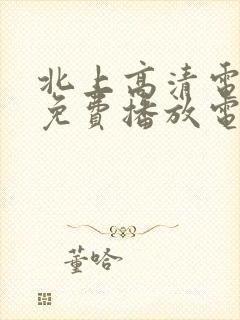 北上高清電
免費播放電
董哈